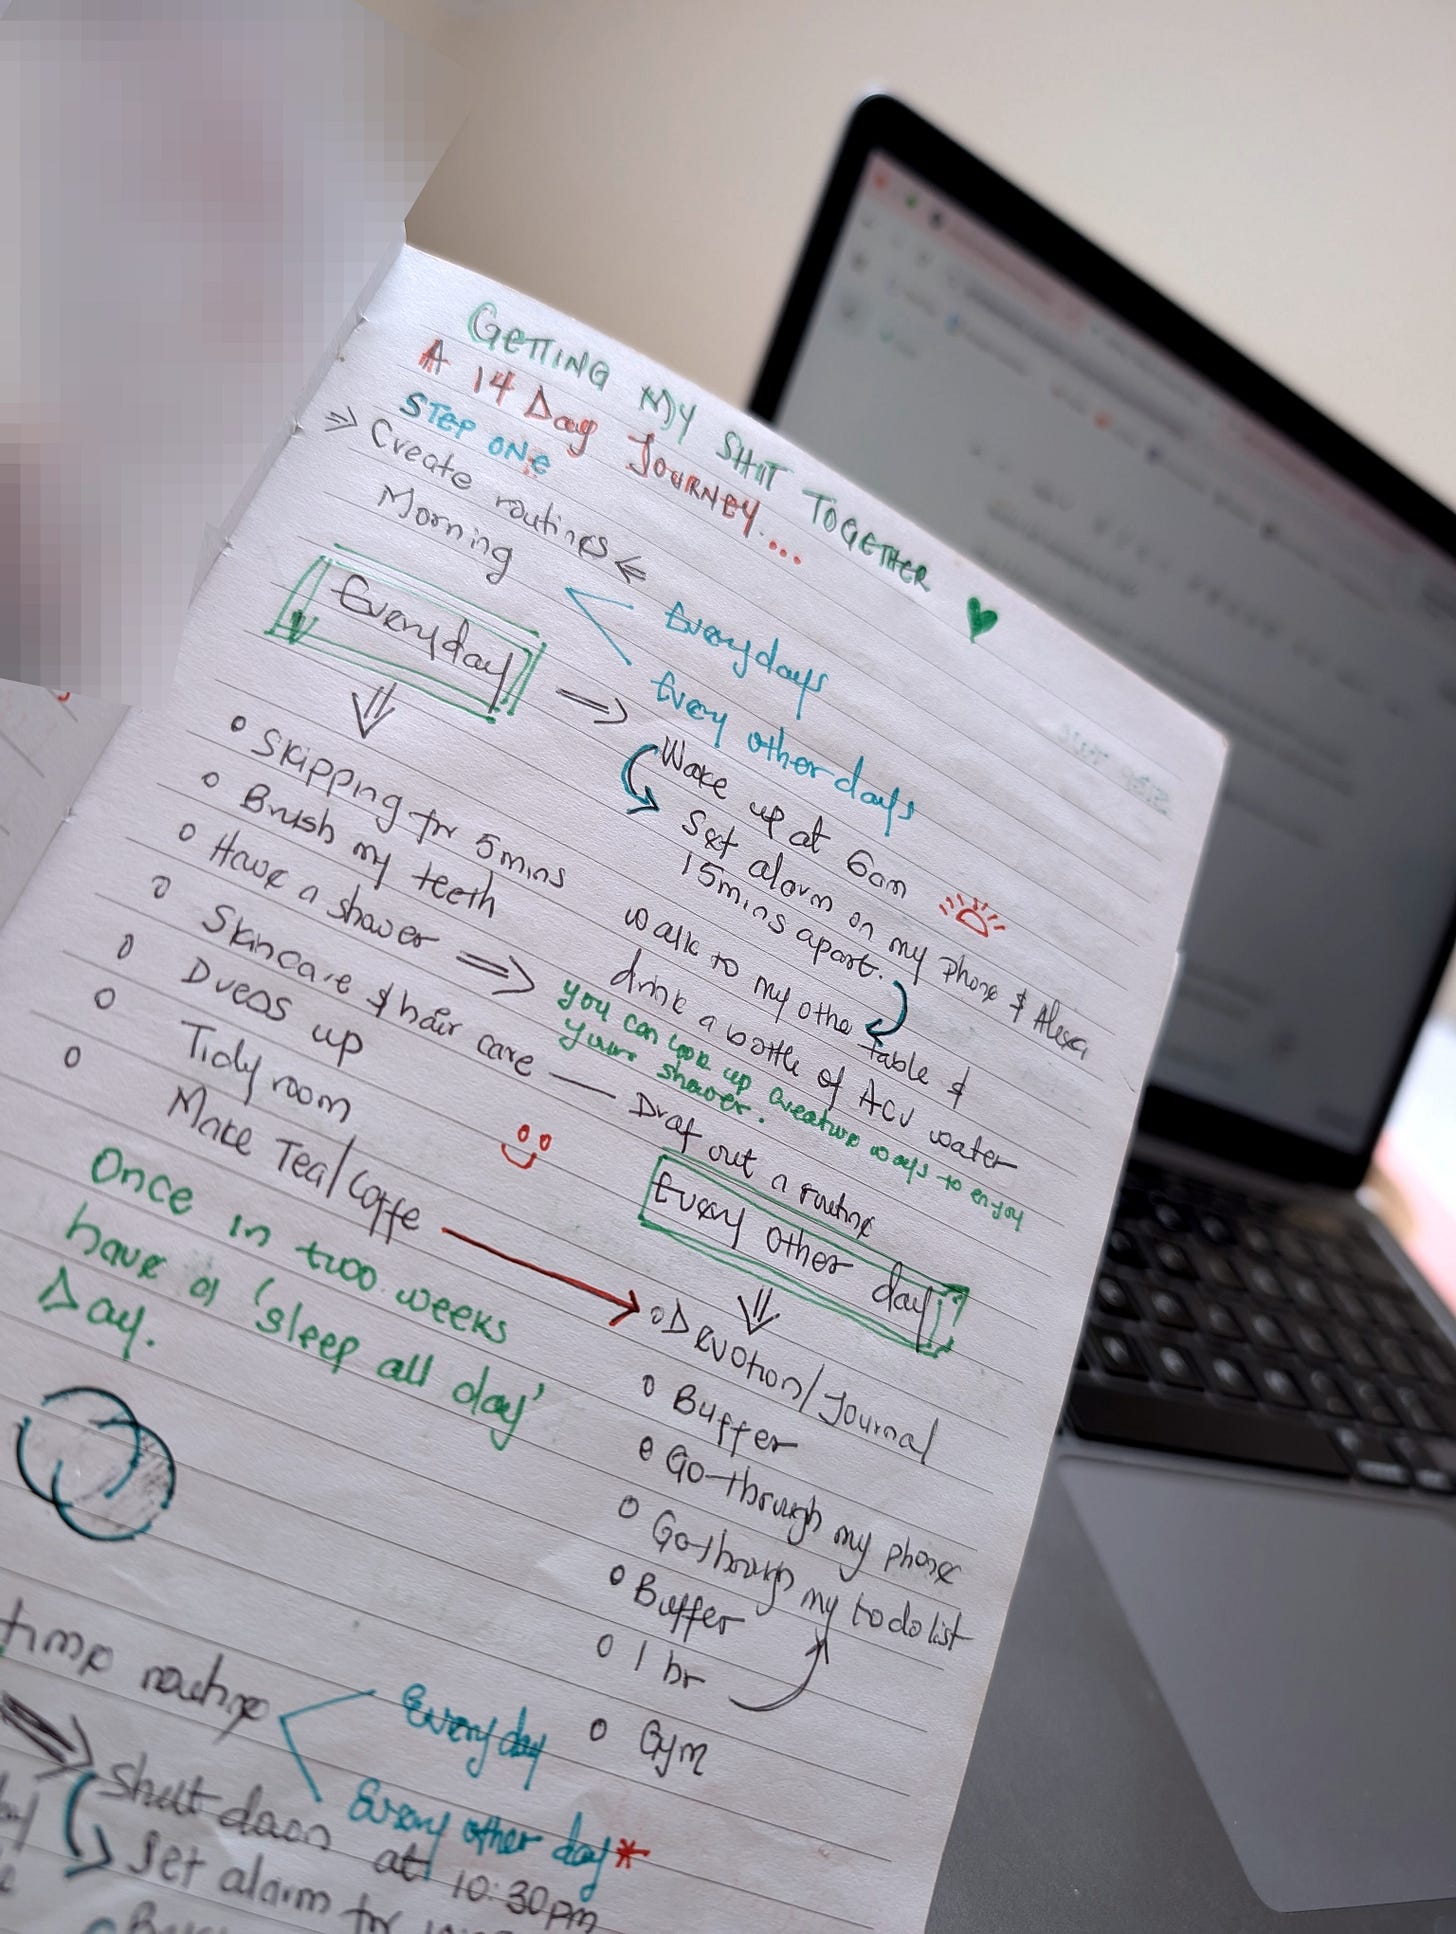 GETTING MY SHIT TOGETHER
A 14 Day JOURNEY....
STEP ONE
⇒ Create routines ⇐
Morning
Everydays
Every other days
Everyday
⇒ Wake up at 6am
Set alarm on my phone & Alexa
15mins apart.
walk to my othe table &
drink a bottle of ACV water
o Skipping for 5mins
o Brush my teeth
o Have a shower ⇒
you can look up creative ways to enjoy
your shower.
o Skincare & hair care — Draf out a routine
o Dress up
o Tidy room
o Make Tea/Coffe
Once in two weeks
have a 'sleep all day'
Day.
Every other day
o Devotion/Journal
o Buffer
o Go through my phone
o Go through my to do list
o Buffer
o 1 hr
o Gym
time routine
Everyday
Every other day*
Shut down at 10:30pm
Set alarm for